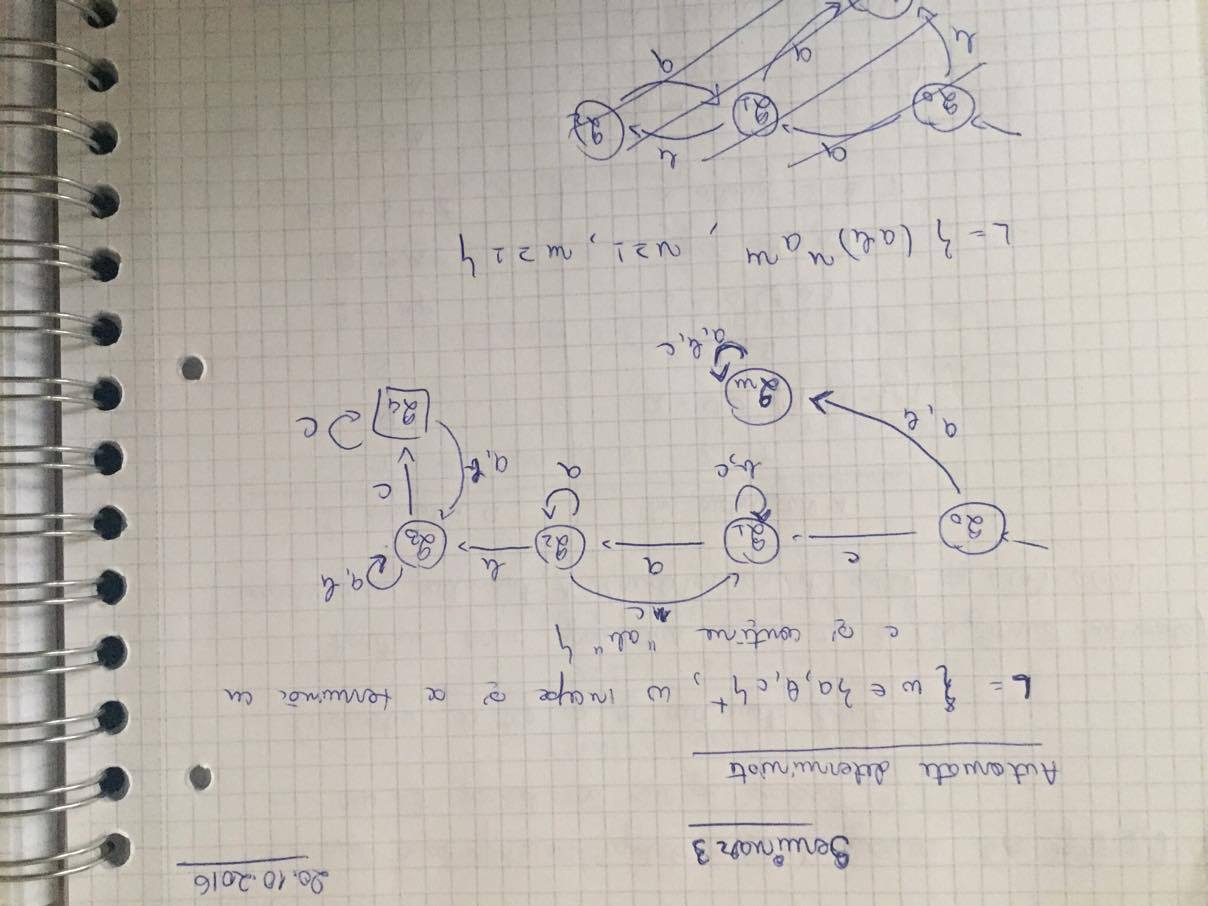 20.10.2016
Seminar 3
Automate deterministe
L = { w ∈ {a, b, c}⁺, w începe și se termină cu
c și conține "ab" }
c
a, b
q0
c
q1
b, c
a
q2
a
b
q3
a, b
c
q4
c
a, b
qw
a, b, c
L = { (ab)ⁿ aᵐ, n ≥ 1, m ≥ 1 }
q0
a
q1
b
q2
a
a
b